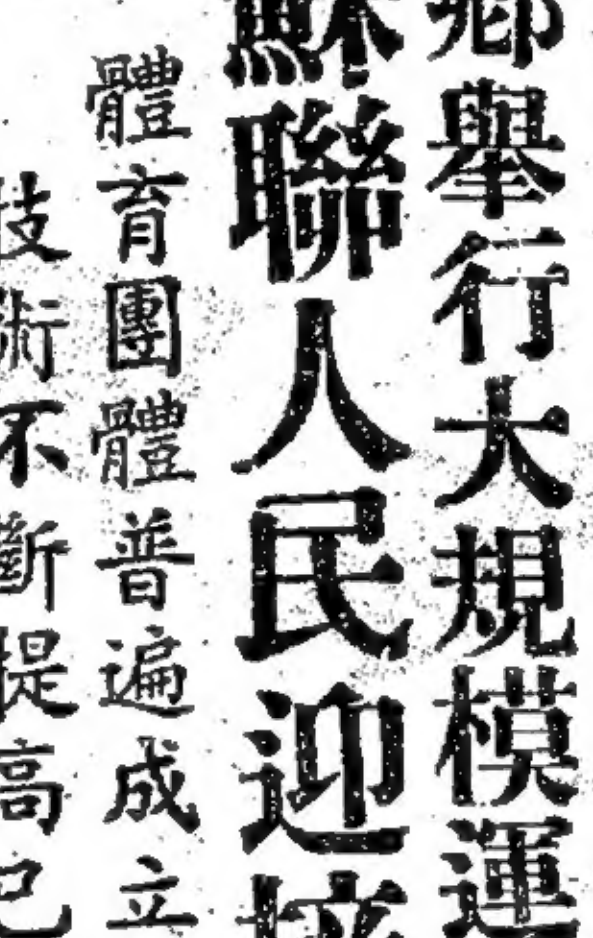 鄉舉行大規模運
蘇聯人民迎接
體育團體普遍成立
技術不斷提高已